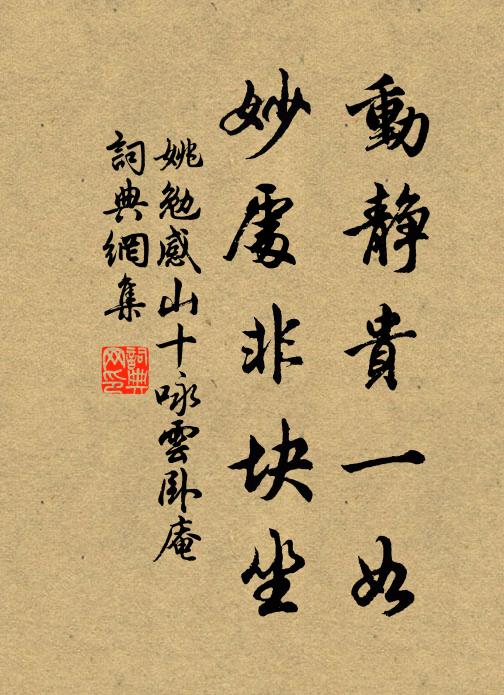 動静貴一如
妙處非块坐
姚勉感山十咏雲卧庵
詞典網集
詞典网印